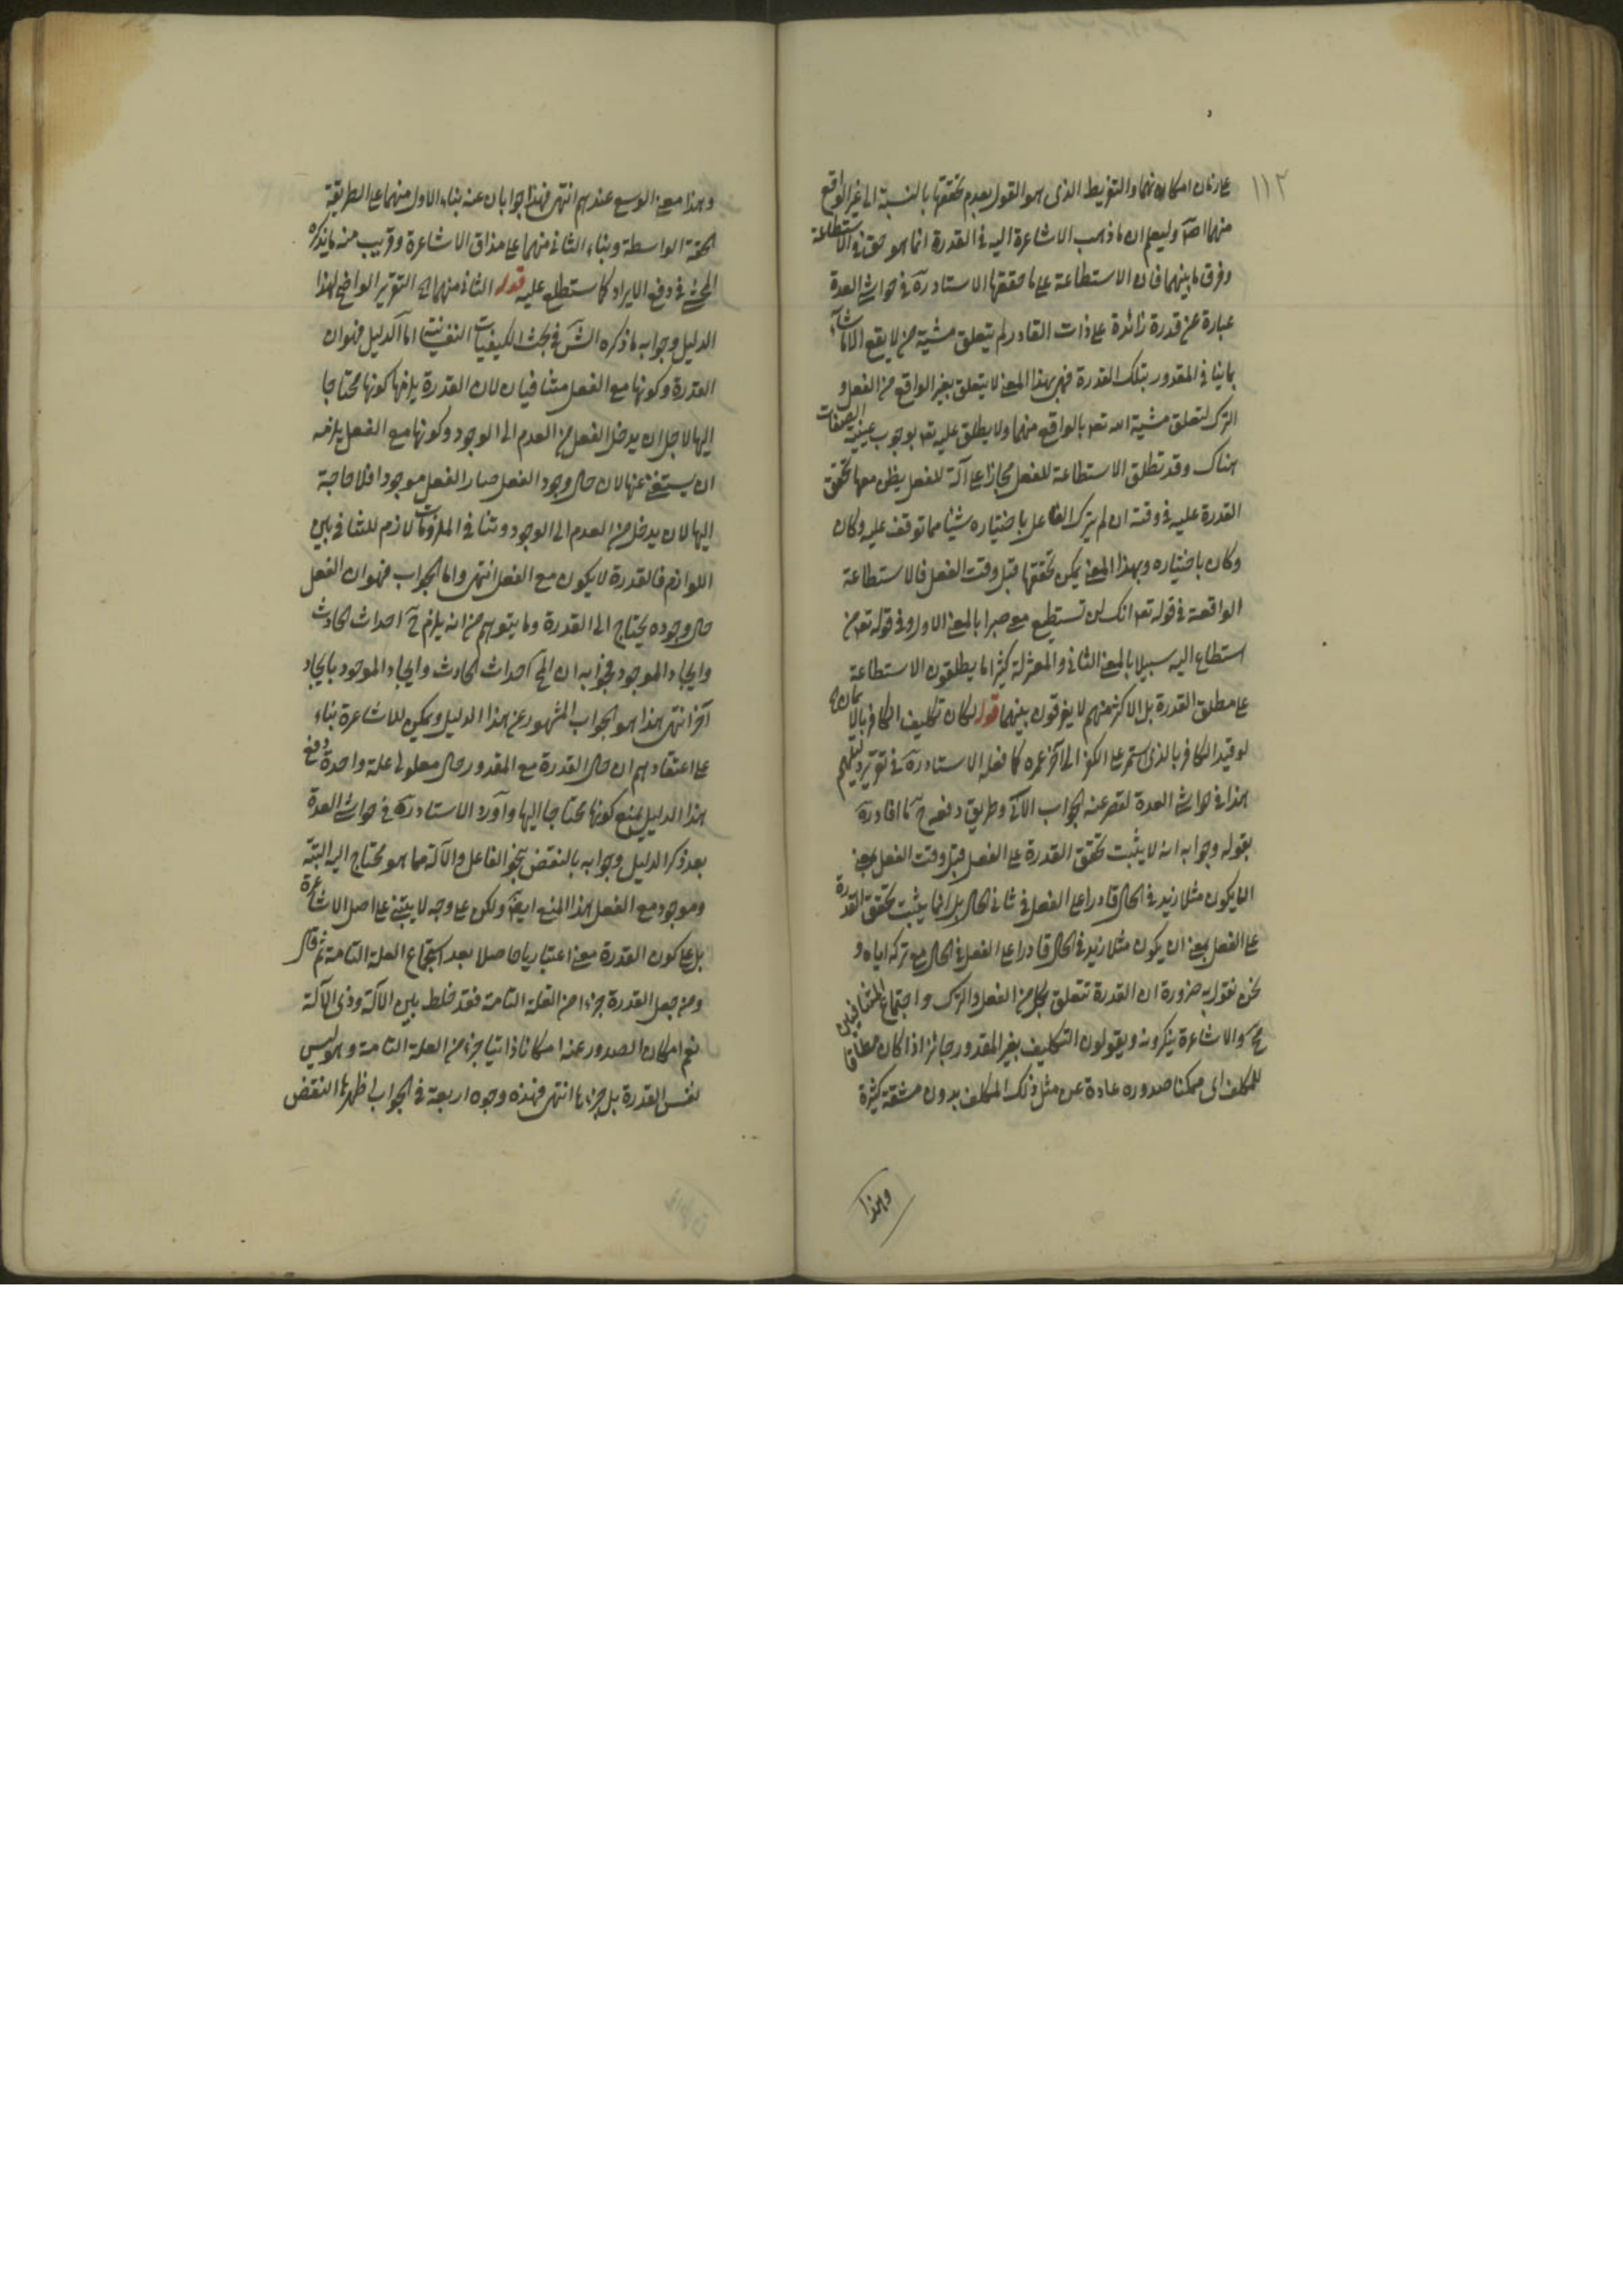 ١١٢
على زمان امكانهما والتفريط الذى هو القول بعدم تحققها بالنسبة الى غير الواقع
منهما اصلا وليعلم ان ما ذهب الاشاعرة اليه فى القدرة انما هو حق فى الاستطاعة
وفرق ما بينهما فان الاستطاعة على ما حققها الاستاد ره فى حواشى العدة
عبارة عن قدرة زائدة على ذات القادر لم يتعلق مشية من لا يقع الا ما شاء
بما ينافى المقدور بتلك القدرة فهى بهذا المعنى لا يتعلق بغير الواقع من الفعل و
الترك لتعلق مشية الله تعه بالواقع منهما ولا يطلق عليه تعه بوجوب عينية الصفات
هناك وقد تطلق الاستطاعة للفعل مجازا على آلة للفعل يظن معها تحقق
القدرة عليه فى وقته ان لم يترك الفاعل باختياره شيئا مما توقف عليه وكان
وكان باختياره وبهذا المعنى يمكن تحققها قبل وقت الفعل فالاستطاعة
الواقعة فى قوله تعه انك لن تستطيع معى صبرا بالمعنى الاول وفى قوله تعه من
استطاع اليه سبيلا بالمعنى الثانى والمعتزلة كثيرا ما يطلقون الاستطاعة
على مطلق القدرة بل الاكثر منهم لا يفرقون بينهما قوله لكان تكليف الكافر بالايمان اه
لو قيد الكافر بالذى استمر على الكفر الى آخر عمره كما فعله الاستاد ره فى تقرير دليلهم
هذا فى حواشى العدة لقصر عنه الجواب الآتى وطريق دفعه ح ما افاد ره
بقوله وجوابه انه لا يثبت تحقق القدرة على الفعل قبل وقت الفعل بمعنى
ان يكون مثلا زيد فى الحال قادرا على الفعل فى ثانى الحال بل انما يثبت تحقق القدرة
على الفعل بمعنى ان يكون مثلا زيد فى الحال قادرا على الفعل فى الحال مع تركه اياه و
نحن نقول به ضرورة ان القدرة تتعلق بكل من الفعل والترك واجتماع المتنافيين
مح والاشاعرة ينكرونه ويقولون التكليف بغير المقدور جائز اذا كان مطاقا
للمكلف اى ممكنا صدوره عادة عن مثل ذلك المكلف بدون مشقة كثيرة
وهذا
وهذا معنى الوسع عندهم انتهى فهذا جوابان عنه بناء الاول منهما على الطريقة
الحقة الواسطة وبناء الثانى منهما على مذاق الاشاعرة وقريب منه ما يذكره
المحشى فى دفع الايراد كما ستطلع عليه قوله الثانى منهما اه التقرير الواضح لهذا
الدليل وجوابه ما ذكره الشى فى بحث الكيفيات النفسية اما الدليل فهو ان
القدرة وكونها مع الفعل متنافيان لان القدرة يلزمها كونها محتاجا
اليها لاجل ان يدخل الفعل من العدم الى الوجود وكونها مع الفعل يلزمه
ان يستغنى عنها لان حال وجود الفعل صار الفعل موجودا فلا حاجة
اليها لان يدخل من العدم الى الوجود وتنافى الملزومات لازم للتنافى بين
اللوازم فالقدرة لا يكون مع الفعل انتهى واما الجواب فهو ان الفعل
حال وجوده يحتاج الى القدرة وما يتوهم من انه يلزم ح احداث الحادث
وايجاد الموجود فجوابه ان المح احداث الحادث وايجاد الموجود بايجاد
آخر انتهى هذا هو الجواب المشهور عن هذا الدليل ويمكن للاشاعرة بناء
على اعتقادهم ان حال القدرة مع المقدور حال معلولى علة واحدة دفع
هذا الدليل بمنع كونها محتاجا اليها واورد الاستاد ره فى حواشى العدة
بعد ذكر الدليل وجوابه بالنقض بنحو الفاعل والآلة مما هو محتاج اليه البتة
وموجود مع الفعل هذا المنع ايضا ولكن على وجه لا يبتنى على اصل الاشاعرة
بل على كون القدرة معنى اعتباريا حاصلا بعد استجماع العلة التامة ثم قال
ومن جعل القدرة جزءا من العلة التامة فقد خلط بين الآلة وذى الآلة
نعم امكان الصدور عنه امكانا ذاتيا جزء من العلة التامة وهو ليس
نفس القدرة بل جزءها انتهى فهذه وجوه اربعة فى الجواب اظهرها النقض